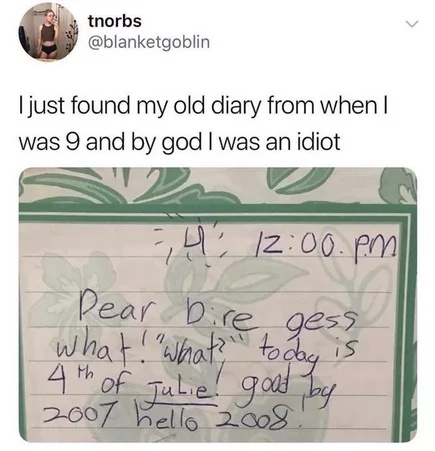 tnorbs
@blanketgoblin
I just found my old diary from when I
was 9 and by god I was an idiot
12:00. pm
Dear Dire gess
what! "what?" today is
4th of JuLie! good by
2007 hello 2008!